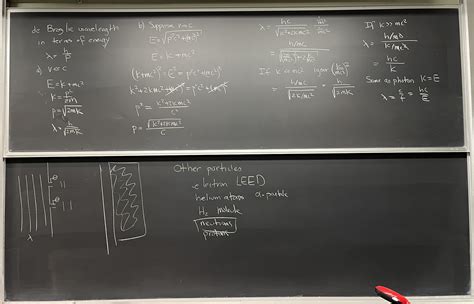 de Broglie wavelength
in terms of energy
λ = h/p
a) v<<c
E = K + mc²
K = p²/2m
p = √2mK
λ = h/√2mK
b) Suppose v≈c
E = √p²c²+(mc²)²
E = K + mc²
(K+mc²)² = E² = p²c²+(mc²)²
K²+2Kmc²+(mc²)² = p²c²+(mc²)²
p² = K²+2Kmc²/c²
p = √K²+2Kmc²/c
λ = hc/√K²+2Kmc²
If K<<mc²
h/√2mK
If K>>mc²
λ =
hc/K
Same as photon K=E
λ = c/f = hc/E
λ
e
e
Other particles
electron LEED
helium atoms α-particle
H₂ molecule
neutrons
protons